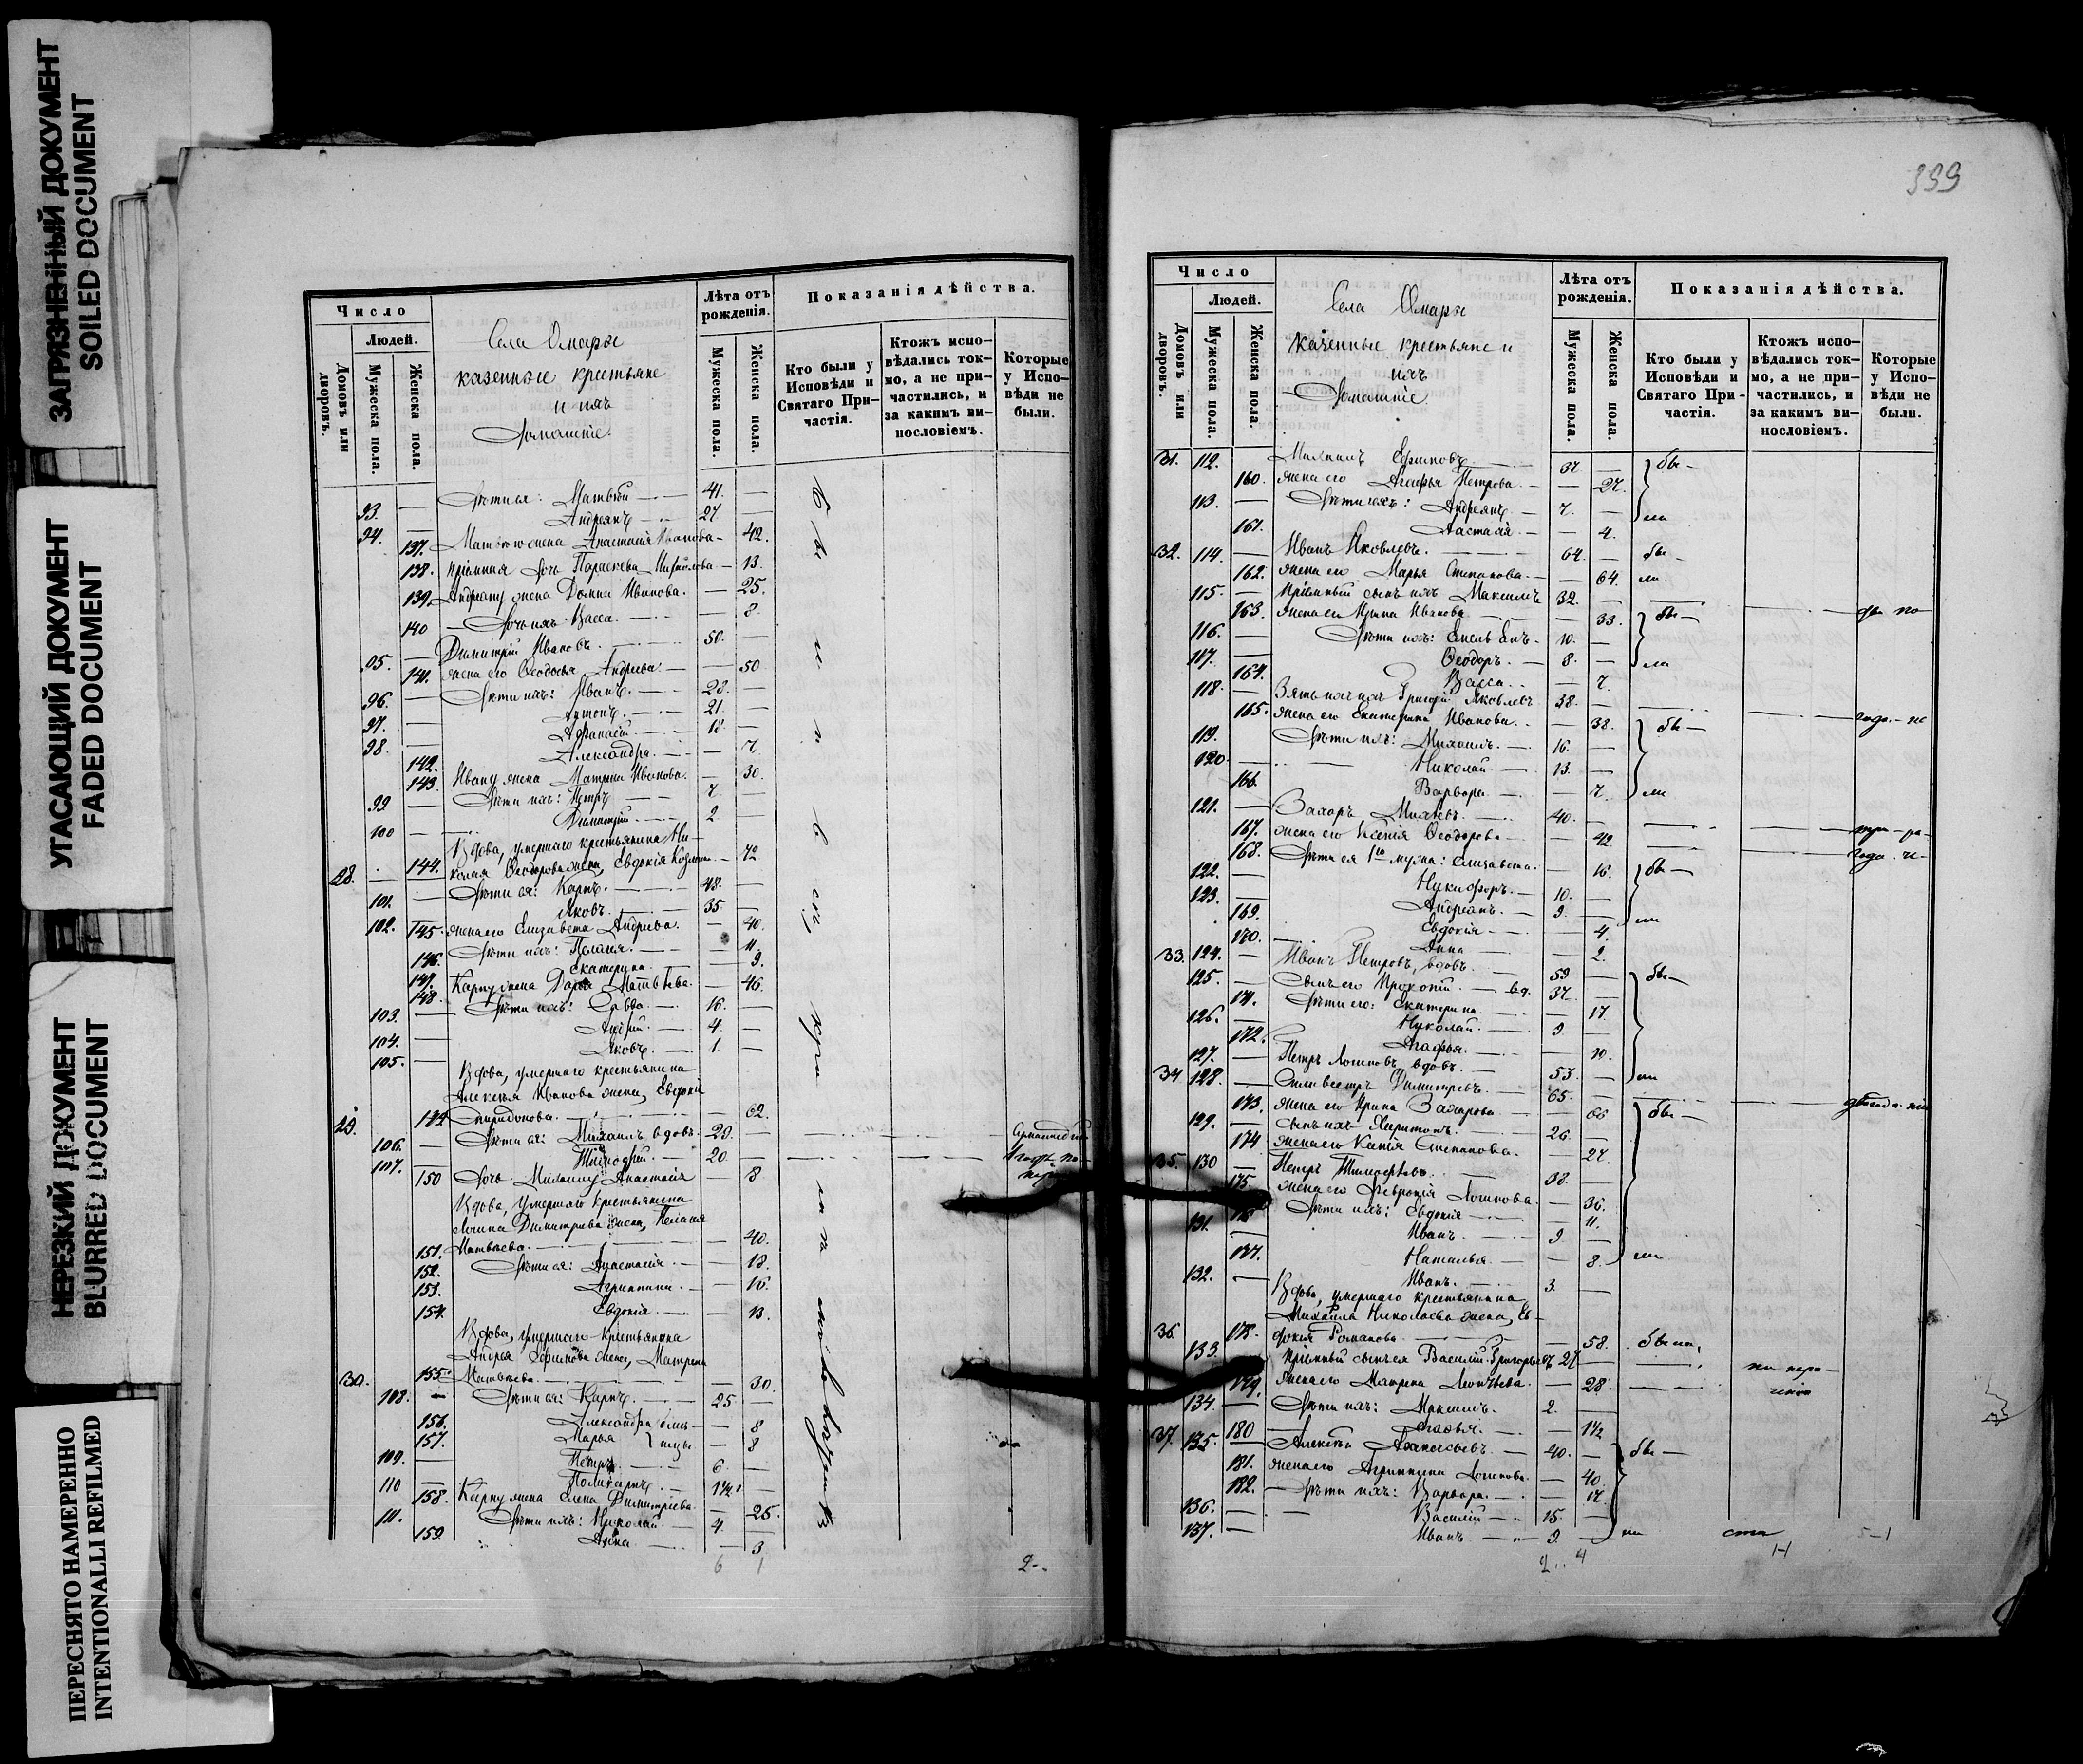 ЗАГРЯЗНЕННЫЙ ДОКУМЕНТ
SOILED DOCUMENT
УГАСАЮЩИЙ ДОКУМЕНТ
FADED DOCUMENT
НЕРЕЗКИЙ ДОКУМЕНТ
BLURRED DOCUMENT
ПЕРЕСНЯТО НАМЕРЕННО
INTENTIONALLI REFILMED
Число
Людей.
Домовъ или дворовъ.
Мужеска пола.
Женска пола.
Села Омары
казенные крестьяне
и ихъ
Домашніе.
Лѣта отъ рожденія.
Мужеска пола.
Женска пола.
Показанія дѣйства.
Кто были у Исповѣди и Святаго При-частія.
Ктожъ испо-вѣдались ток-мо, а не при-частились, и за какимъ ви-нословіемъ.
Которые у Испо-вѣди не были.
93. — Дѣти ея: Матвѣй — 41. —
94. — Андреянъ — 27. —
137. Матвѣю жена Анастасія Иванова — 42.
138. Пріемная дочь Параскева — 13.
139. Андреяну жена Домна Иванова. — 25.
140 Дочь ихъ Васса. — 8.
95. — Димитрій Ивановъ. — 50. —
141. жена его Ѳеодосья Андреева. — 50
96. — Дѣти ихъ: Иванъ. — 23. —
97. — Антонъ. — 21. —
98. — Афанасій. — 18 —
142. Александра. — 7.
143. Ивану жена Матрена Иванова. — 30.
99. — Дѣти ихъ: Петръ — 7 —
100 — Димитрій — 2 —
Вдова, умершаго крестьянина Ни-
28. 144. колая Ѳеодорова жена, Евдокія — 72
101. — Дѣти ея: Карпъ. — 48. —
102. — Яковъ. — 35. —
145. жена его Елизавета Андреева. — 40.
146. Дѣти ихъ: Пелагея. — 11.
147. Екатерина. — 9.
148. Карпу жена Дарья Матвѣева. — 46.
103. — Дѣти ихъ: Савва. — 16. —
104. — — 4. —
105. — Яковъ. — 1. —
Вдова, умершаго крестьянина
Алексѣя Иванова жена, Евдокія
29. Спиридонова. — 62.
106. — Дѣти ея: Михаилъ вдовъ. 29. —
107. — 20. —
150 Дочь Михаилу Анастасія — 8
Вдова, умершаго крестьянина
Димитріева жена, Пелагея
151. Матвѣева. — 40.
152. Дѣти ея: Анастасія. — 18.
153. Агриппина. — 16.
154. Евдокія. — 13.
Вдова, умершаго крестьянина
Андрея Ефимова жена, Матрена
30. 155. Матвѣева. — 30.
108. — Дѣти ея: Карпъ. — 25 —
156. Александра — 8
157. Марья — 8
109. — Петръ. — 6. —
110 — Поликарпъ. — 1½ —
158. Карпу жена Елена Димитріева. — 25.
111. — Дѣти ихъ: Николай. — 4. —
159. Анна — 3
6 1 2
399
Число
Людей.
Домовъ или дворовъ.
Мужеска пола.
Женска пола.
Села Омары
казенные крестьяне и
ихъ
Домашніе.
Лѣта отъ рожденія.
Мужеска пола.
Женска пола.
Показанія дѣйства.
Кто были у Исповѣди и Святаго При-частія.
Ктожъ испо-вѣдались ток-мо, а не при-частились, и за какимъ ви-нословіемъ.
Которые у Испо-вѣди не были.
31. 112. Михаилъ Ефимовъ — 37 — бы—
160. жена его Агафья Петрова. — 27.
113. — Дѣти ихъ: Андреянъ. — 7. — ли
161. — 4.
32. 114. — Иванъ Яковлевъ. — 64. — бы—
162. жена его Марья Степанова. — 64. ли
115. — Пріемный сынъ ихъ Максимъ 32. —
163. жена его Ирина Иванова. — 33. бы—
116. — Дѣти ихъ: — 10. —
117. — Ѳеодоръ. — 8. — ли
164. Васса. — 7.
118. — Зять ихъ Григорій Яковлевъ 38. —
165. жена его Екатерина Иванова. — 38. бы—
119. Дѣти ихъ: Михаилъ. — 16. —
120. — Николай — 13. —
166. Варвара. — 7. ли
121. — Захаръ — 40. —
167. жена его Ксенія Ѳеодорова — 42
168. Дѣти ея 1го мужа: Елизавета. — 16. бы—
122. — Никифоръ. — 10. —
123. — Андреанъ. — 9. — ли
169. Евдокія — 4.
170. Анна — 2.
33. 124. — Иванъ Петровъ, вдовъ. — 59 — бы—
125. — Сынъ его Прокопій. — вд. 37. —
171. Дѣти его: Екатерина. — 17.
126. — Николай. — 9 —
172. Агафья. — 10.
127. — Петръ Логиновъ вдовъ. — 53. — ли
34 128. — Силивестръ Димитріевъ. — 65. —
173. жена его Ирина Захарова. — 66 бы—
129. — Сынъ ихъ Харитонъ. — 26. —
174 жена его Степанова. — 27.
35. 130 — Петръ Тимофѣевъ. — 38. —
175 жена его Февронія Логинова. — 36.
Дѣти ихъ: Евдокія — 11.
131. — Иванъ. — 9 —
177. Наталья. — 8. ли
132. — Иванъ. — 3. —
Вдова, умершаго крестьянина
Михаила Николаева жена, Ев-
36. 178. докія Романова. — 58. была,
133. Пріемный сынъ ея Василій Григорьевъ 27 —
179. жена его Матрена Леонтьева. — 28.
134. — Дѣти ихъ: Максимъ. 2. —
180 Агафья. — 1½
37. 135. — Алексѣй Афанасьевъ. — 40. — бы—
181. жена его Агриппина Логинова. — 40.
182. Дѣти ихъ: Варвара. — 17.
136. — Василій — 15. —
137. — Иванъ — 9. — ли
2 4